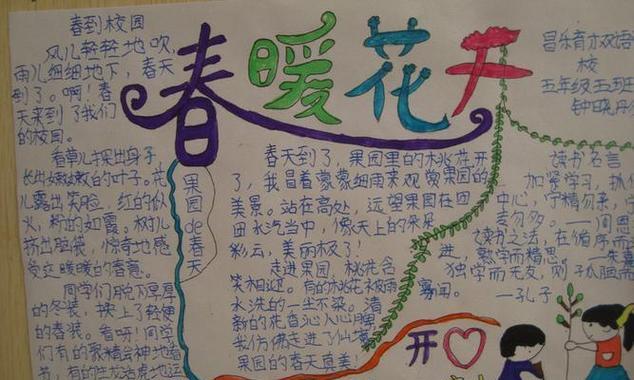 春暖花开
春到校园
风儿轻轻地吹
雨儿细细地下，春天
到了。啊！春
天来到了我们
的校园。
春草儿探出身子
长出嫩嫩的叶子。花
儿露出笑脸，红的似
火，粉的如霞。树儿
挤出脑袋，惊奇地感
受这暖暖的春意。
同学们脱下厚厚
的冬装，换上了轻便
的春装。看呀！同学
们有的聚精会神地看
书，有的生龙活虎地运
果园de春天
春天到了，果园里的桃花开
了，我冒着蒙蒙细雨来观赏果园的
美景。站在高处，远望果园在团
团水汽当中，像天上的朵朵
彩云，美丽极了！
走进果园，桃花含
笑相迎。有的桃花被雨
水洗的一尘不染。清
新的花香沁人心脾
我仿佛走进了仙境
果园的春天真美！
昌乐育才双语
校
五年级五班
钟晓丹
读书名言
加紧学习，抓住
中心，宁精勿杂，宁
专勿多。—周恩
读书之法，在循序而
进，熟学而精思。—朱熹
独学而无友，则孤陋而
寡闻。
—孔子
开